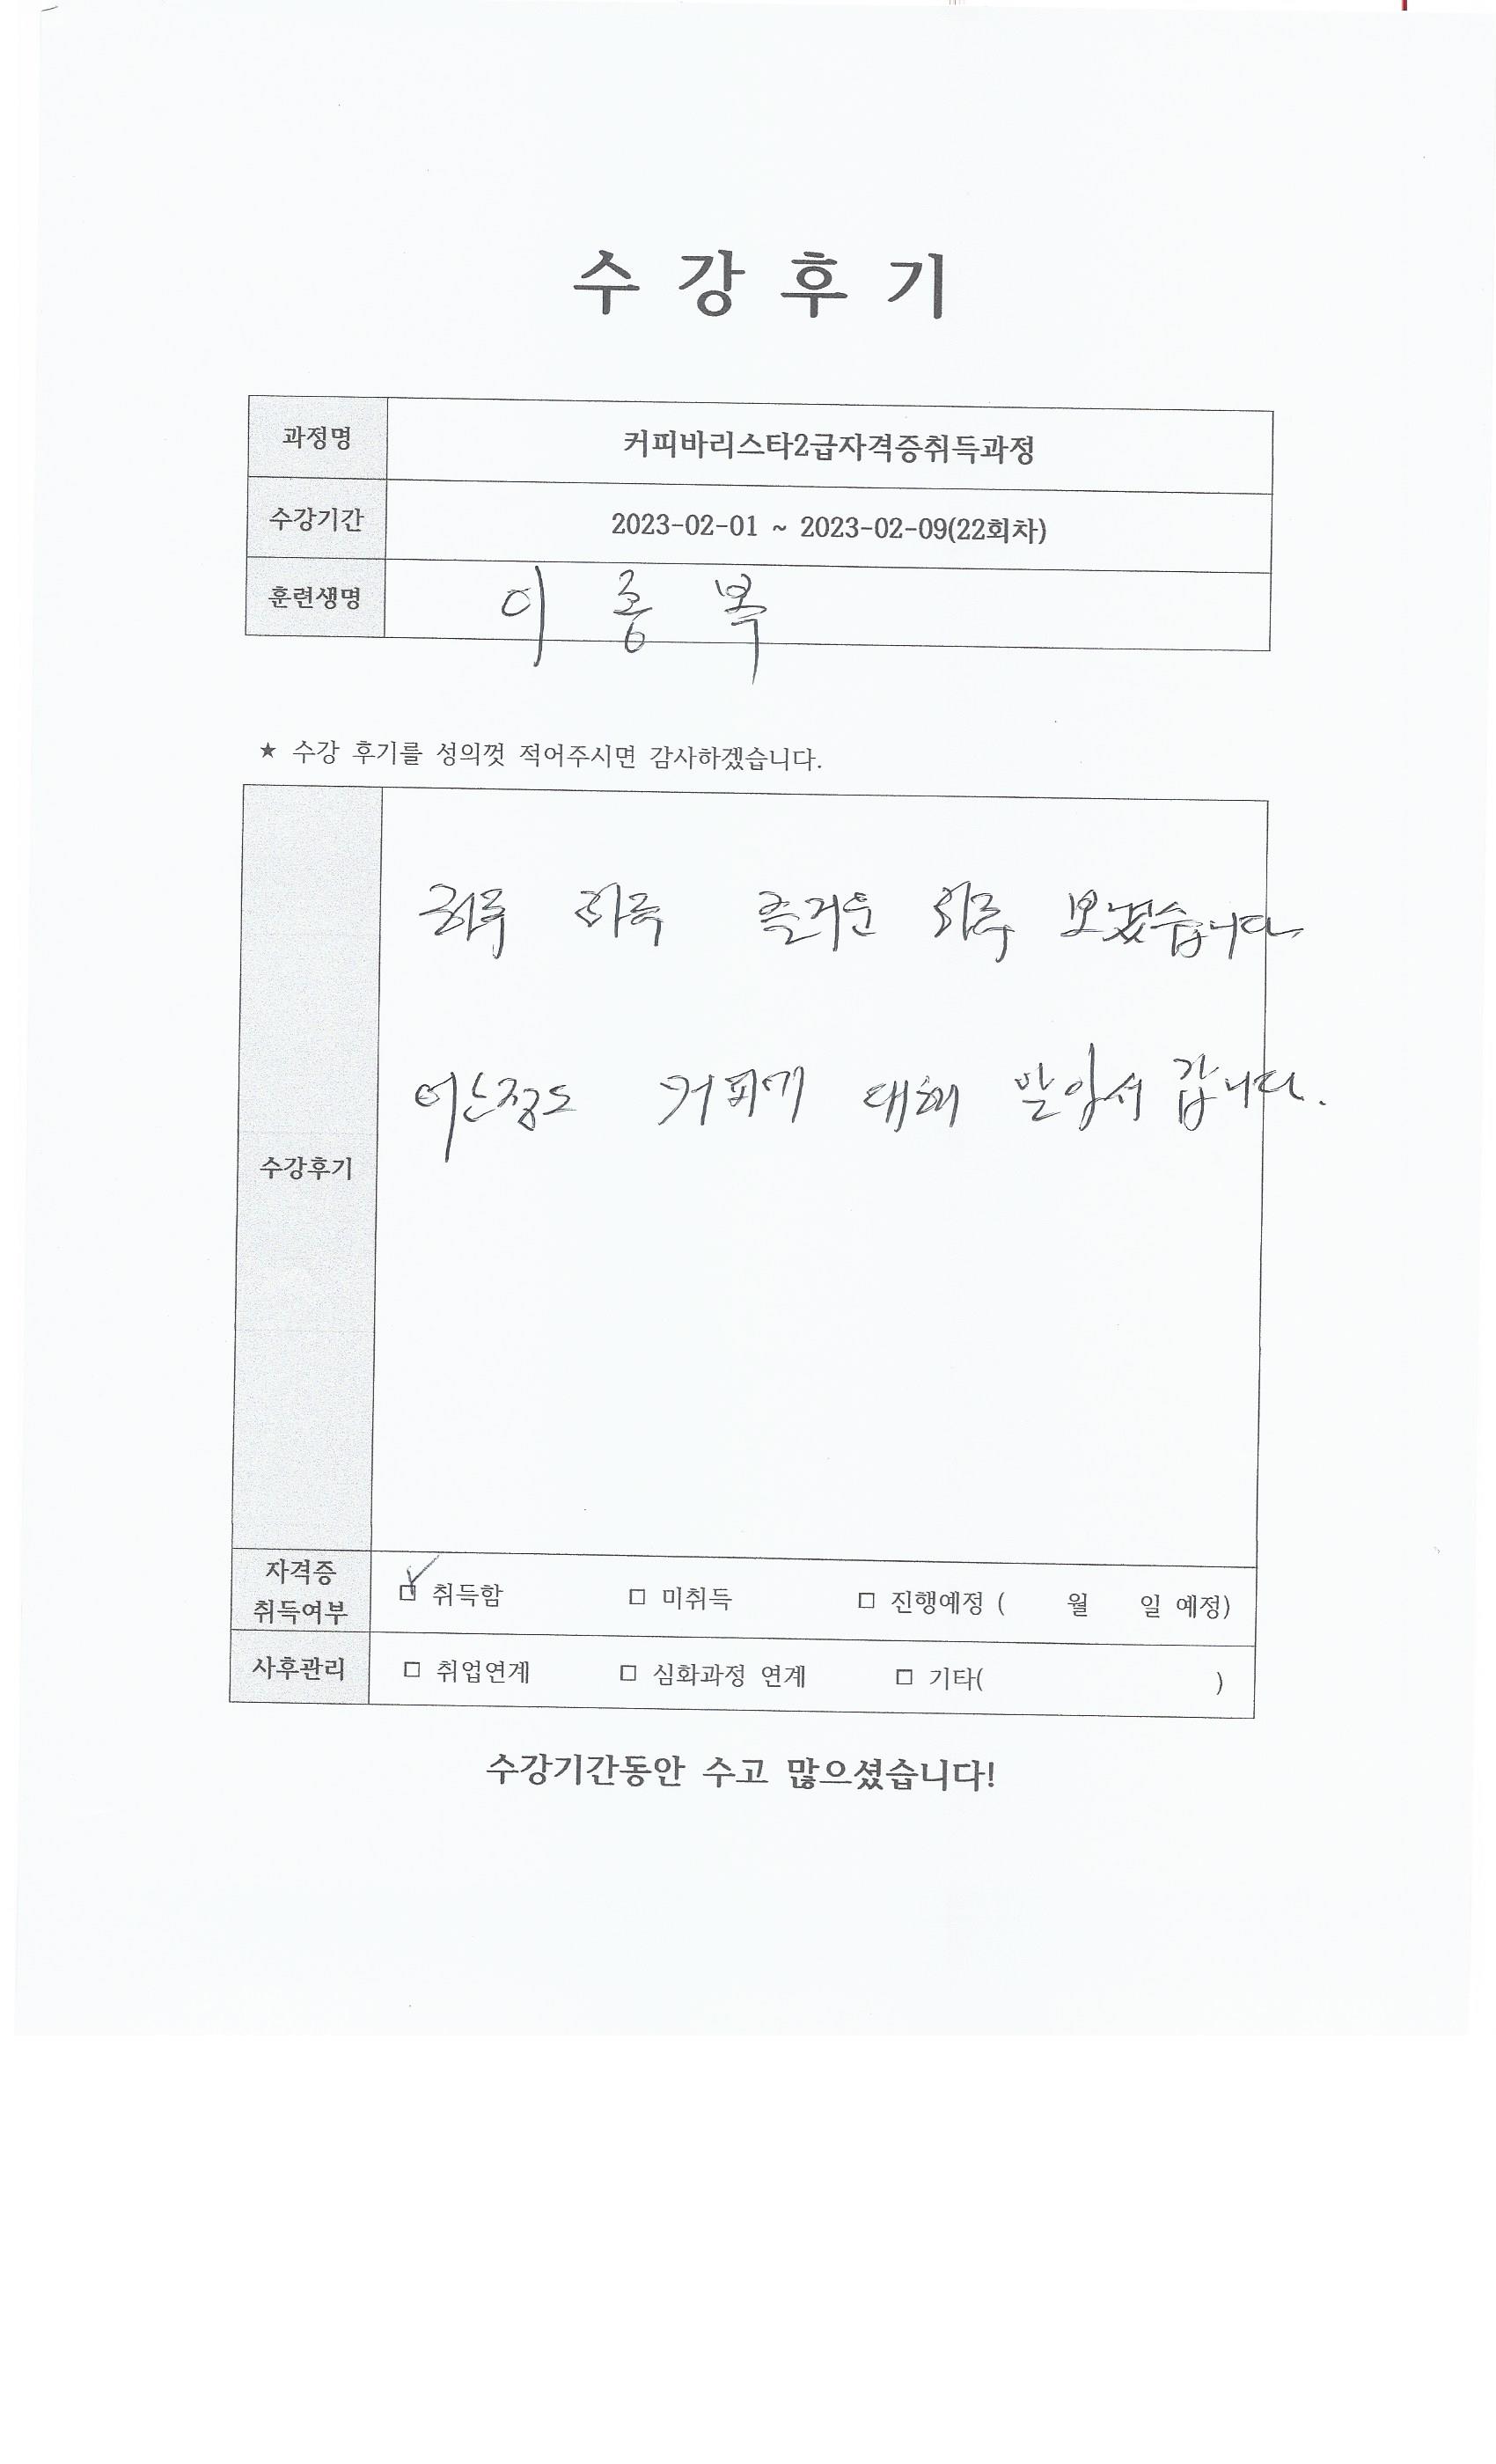 수 강 후 기
과정명 커피바리스타2급자격증취득과정
수강기간 2023-02-01 ~ 2023-02-09(22회차)
훈련생명 이 종 복
★ 수강 후기를 성의껏 적어주시면 감사하겠습니다.
하루 하루 즐거운 하루 보냈습니다
어느정도 커피에 대해 알아서 갑니다.
수강후기
자격증
취득여부 ☑ 취득함 □ 미취득 □ 진행예정 ( 월 일 예정)
사후관리 □ 취업연계 □ 심화과정 연계 □ 기타( )
수강기간동안 수고 많으셨습니다!